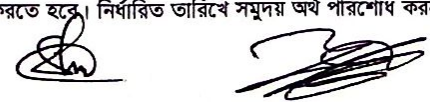 করতে হবে। নির্ধারিত তারিখে সমুদয় অর্থ পরিশোধ কর